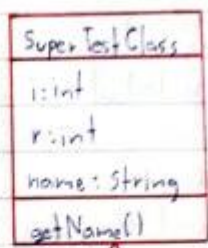 SuperTestClass
i:int
r:int
name: String
getName()